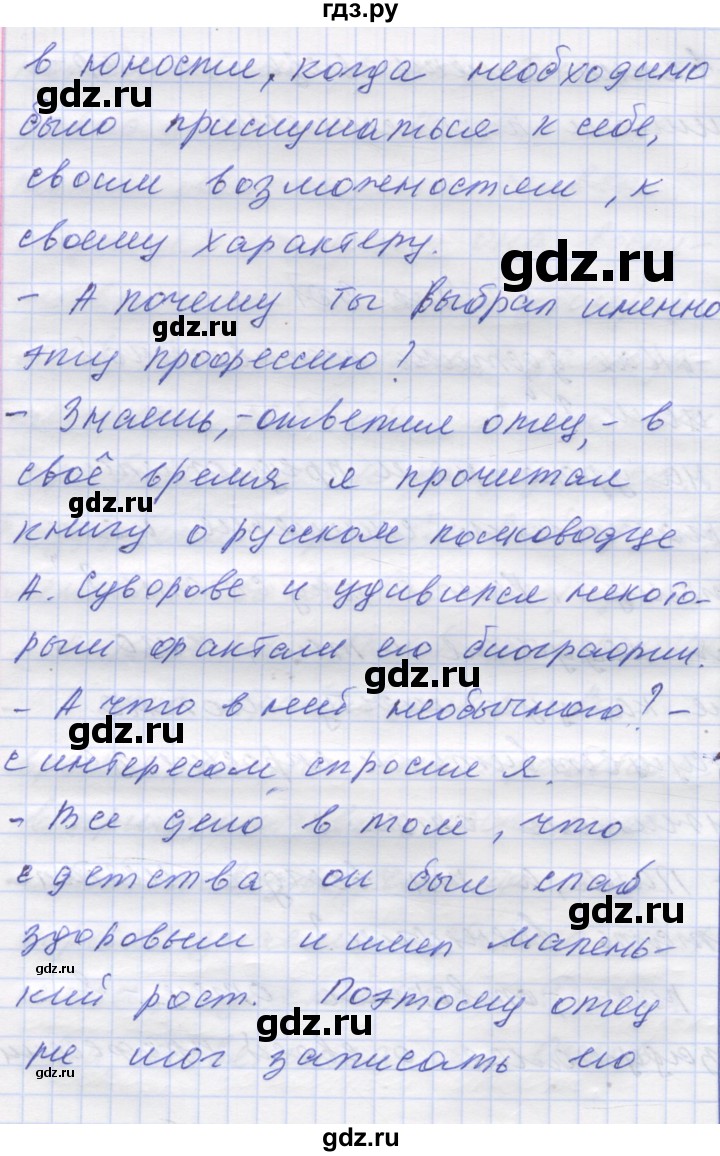 гдз.ру
в юности, когда необходимо
gdz.ru
было прислушаться к себе,
своим возможностям, к
своему характеру.
gdz.ru
- А почему ты выбрал именно
gdz.ru
эту профессию?
- Знаешь, - ответил отец, - в
своё время я прочитал
gdz.ru
книгу о русском полководце
А. Суворове и удивился некото-
рым фактам его биографии.
gdz.ru
- А что в ней необычного? -
gdz.ru
с интересом спросил я.
- Все дело в том, что
с детства он был слаб
gdz.ru
здоровьем и имел малень-
gdz.ru
кий рост. Поэтому отец
gdz.ru
gdz.ru
не мог записать его
gdz.ru
gdz.ru